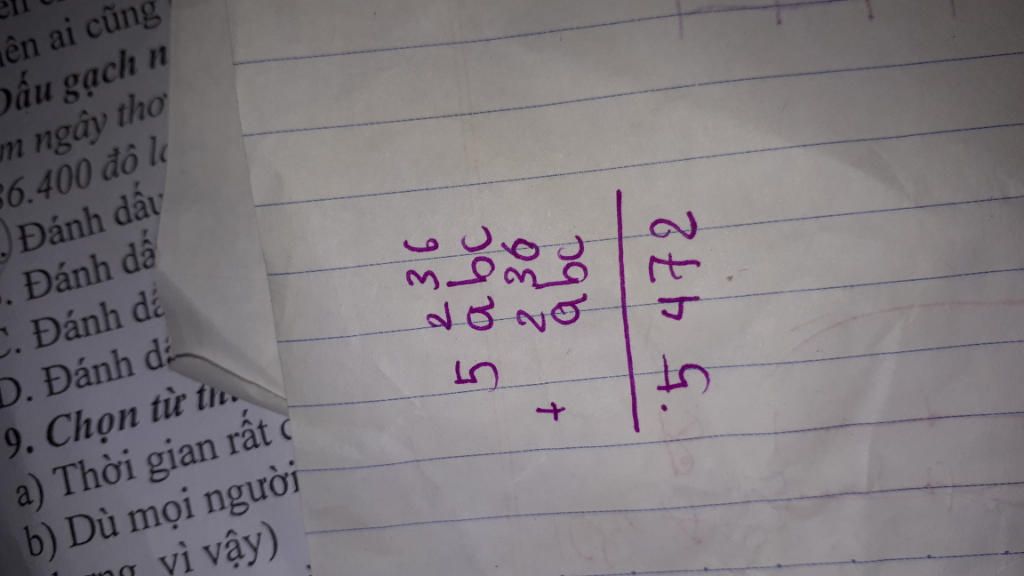 ên ai cũng
Dấu gạch n
m ngây thơ
36.400 đô
Đánh dấu
. Đánh dấ
C. Đánh dấ
D. Đánh dấ
9. Chọn từ
a) Thời gian rất
b) Dù mọi người
vì vậy)
2 3 6
5 a b c
2 3 6
+ a b c
5 4 7 2